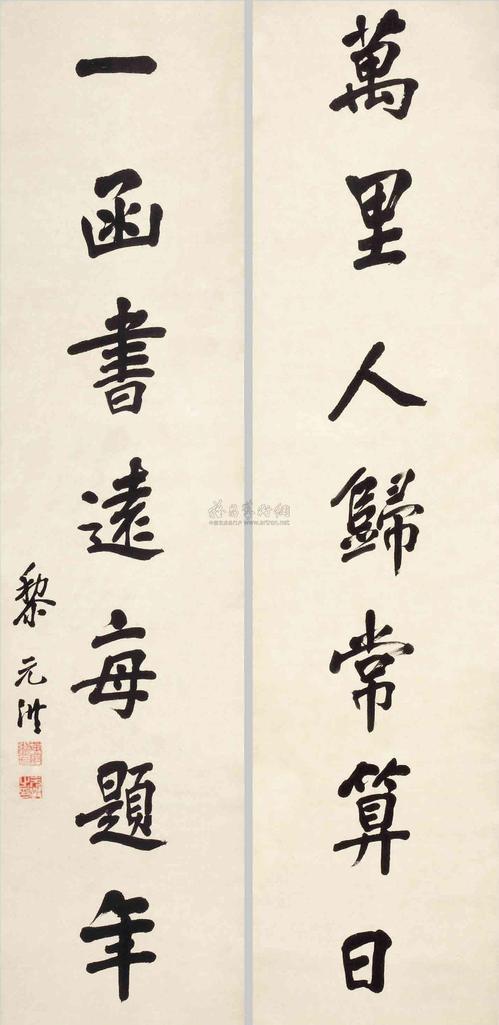 萬里人歸常算日
一函書遠每題年
黎元洪
雅昌藝術網
中国艺术品门户 www.artron.net